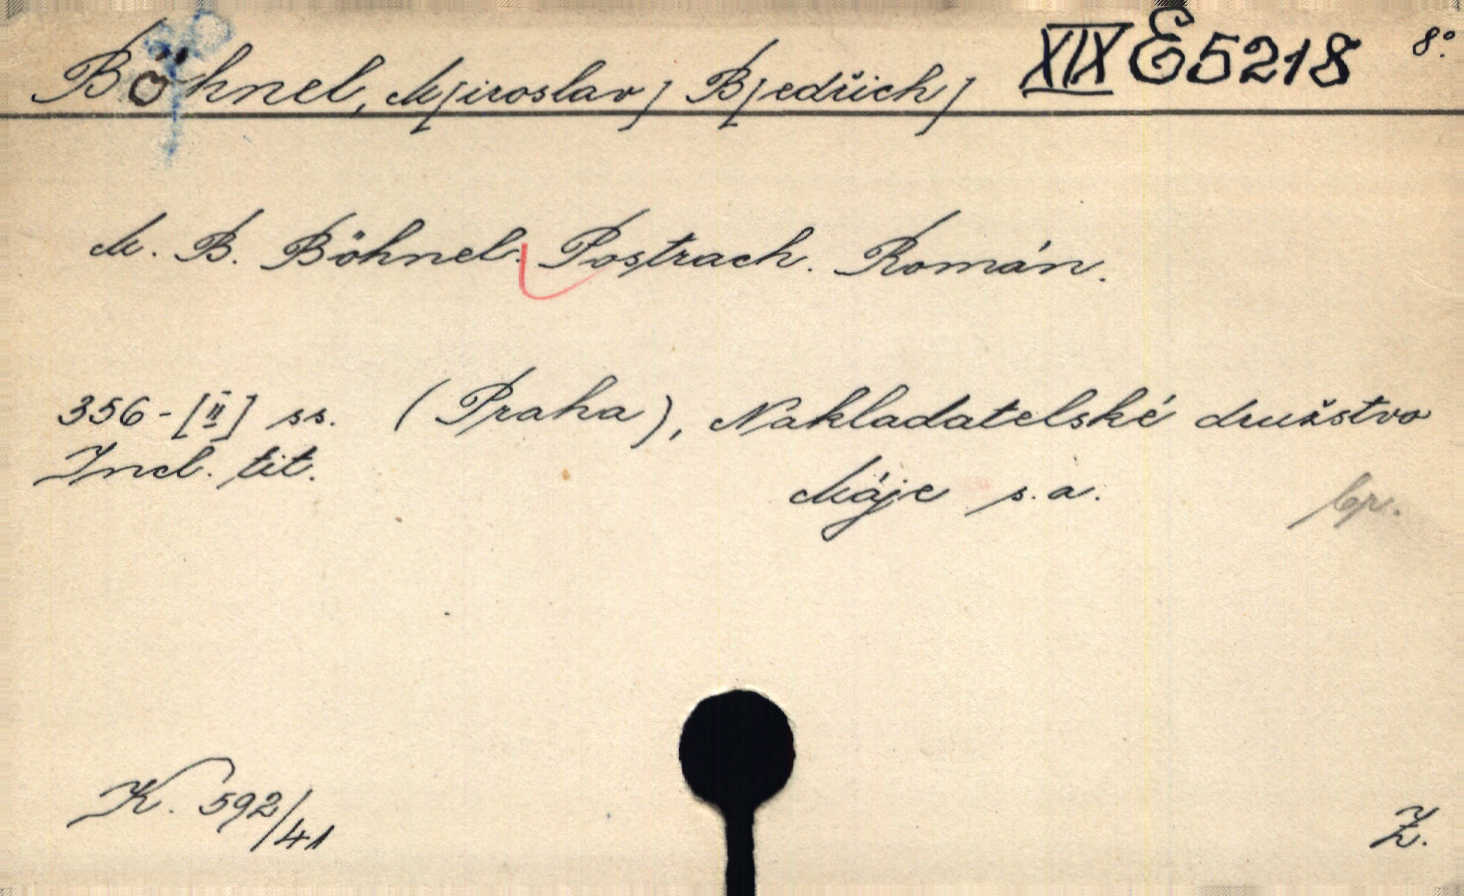 Böhnel, M[iroslav] B[edřich] XIX E 5218 8°.
M. B. Böhnel. Postrach. Román.
356-[II] ss. (Praha), Nakladatelské družstvo
Incl. tit. Máje s. a. br.
K. 592/41 Z.